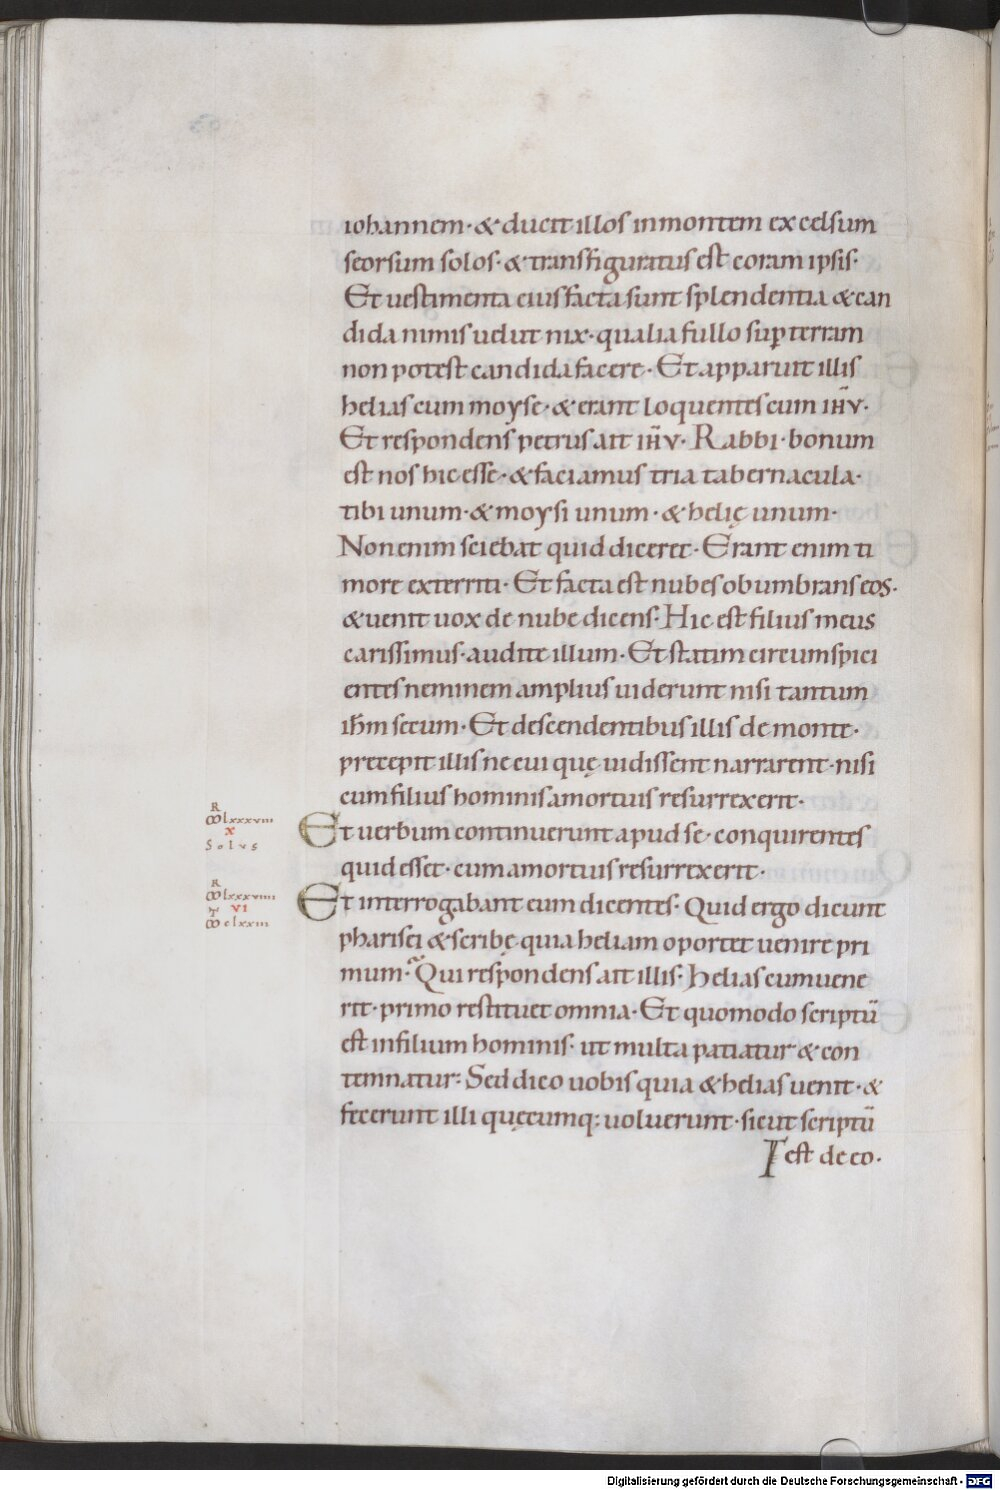 iohannem· & ducit illos in montem excelsum
seorsum solos· & transfiguratus est coram ipsis·
Et uestimenta eius facta sunt splendentia & can
dida nimis uelut nix· qualia fullo sup̱ terram
non potest candida facere· Et apparuit illis
helias cum moyse· & erant loquentes cum ıh̅v·
Et respondens petrus ait ıh̅v· Rabbi· bonum
est nos hic esse· & faciamus tria tabernacula·
tibi unum· & moysi unum· & helię unum·
Non enim sciebat quid diceret· Erant enim ti
more exterriti· Et facta est nubes obumbrans eos·
& uenit uox de nube dicens· Hic est filius meus
carissimus· audite illum· Et statim circumspici
entes neminem amplius uiderunt nisi tantum
ihm̅ secum· Et descendentibus illis de monte·
precepit illis ne cui quę uidissent narrarent· nisi
cum filius hominis a mortuis resurrexerit·
R
ꝏ lxxxviii
x
Solus
Et uerbum continuerunt apud se· conquirentes
quid esset· cum a mortuis resurrexerit·
R
ꝏ lxxxviiii
VI
ꝏ clxxiii
Et interrogabant eum dicentes· Quid ergo dicunt
pharisei & scribę quia heliam oportet uenire pri
mum· Qui respondens ait illis· Helias cum uene
rit· primo restituet omnia· Et quomodo scriptū
est in filium hominis· ut multa patiatur & con
temnatur· Sed dico uobis quia & helias uenit· &
fecerunt illi quęcumq; uoluerunt· sicut scriptū
est de eo·
Digitalisierung gefördert durch die Deutsche Forschungsgemeinschaft - DFG